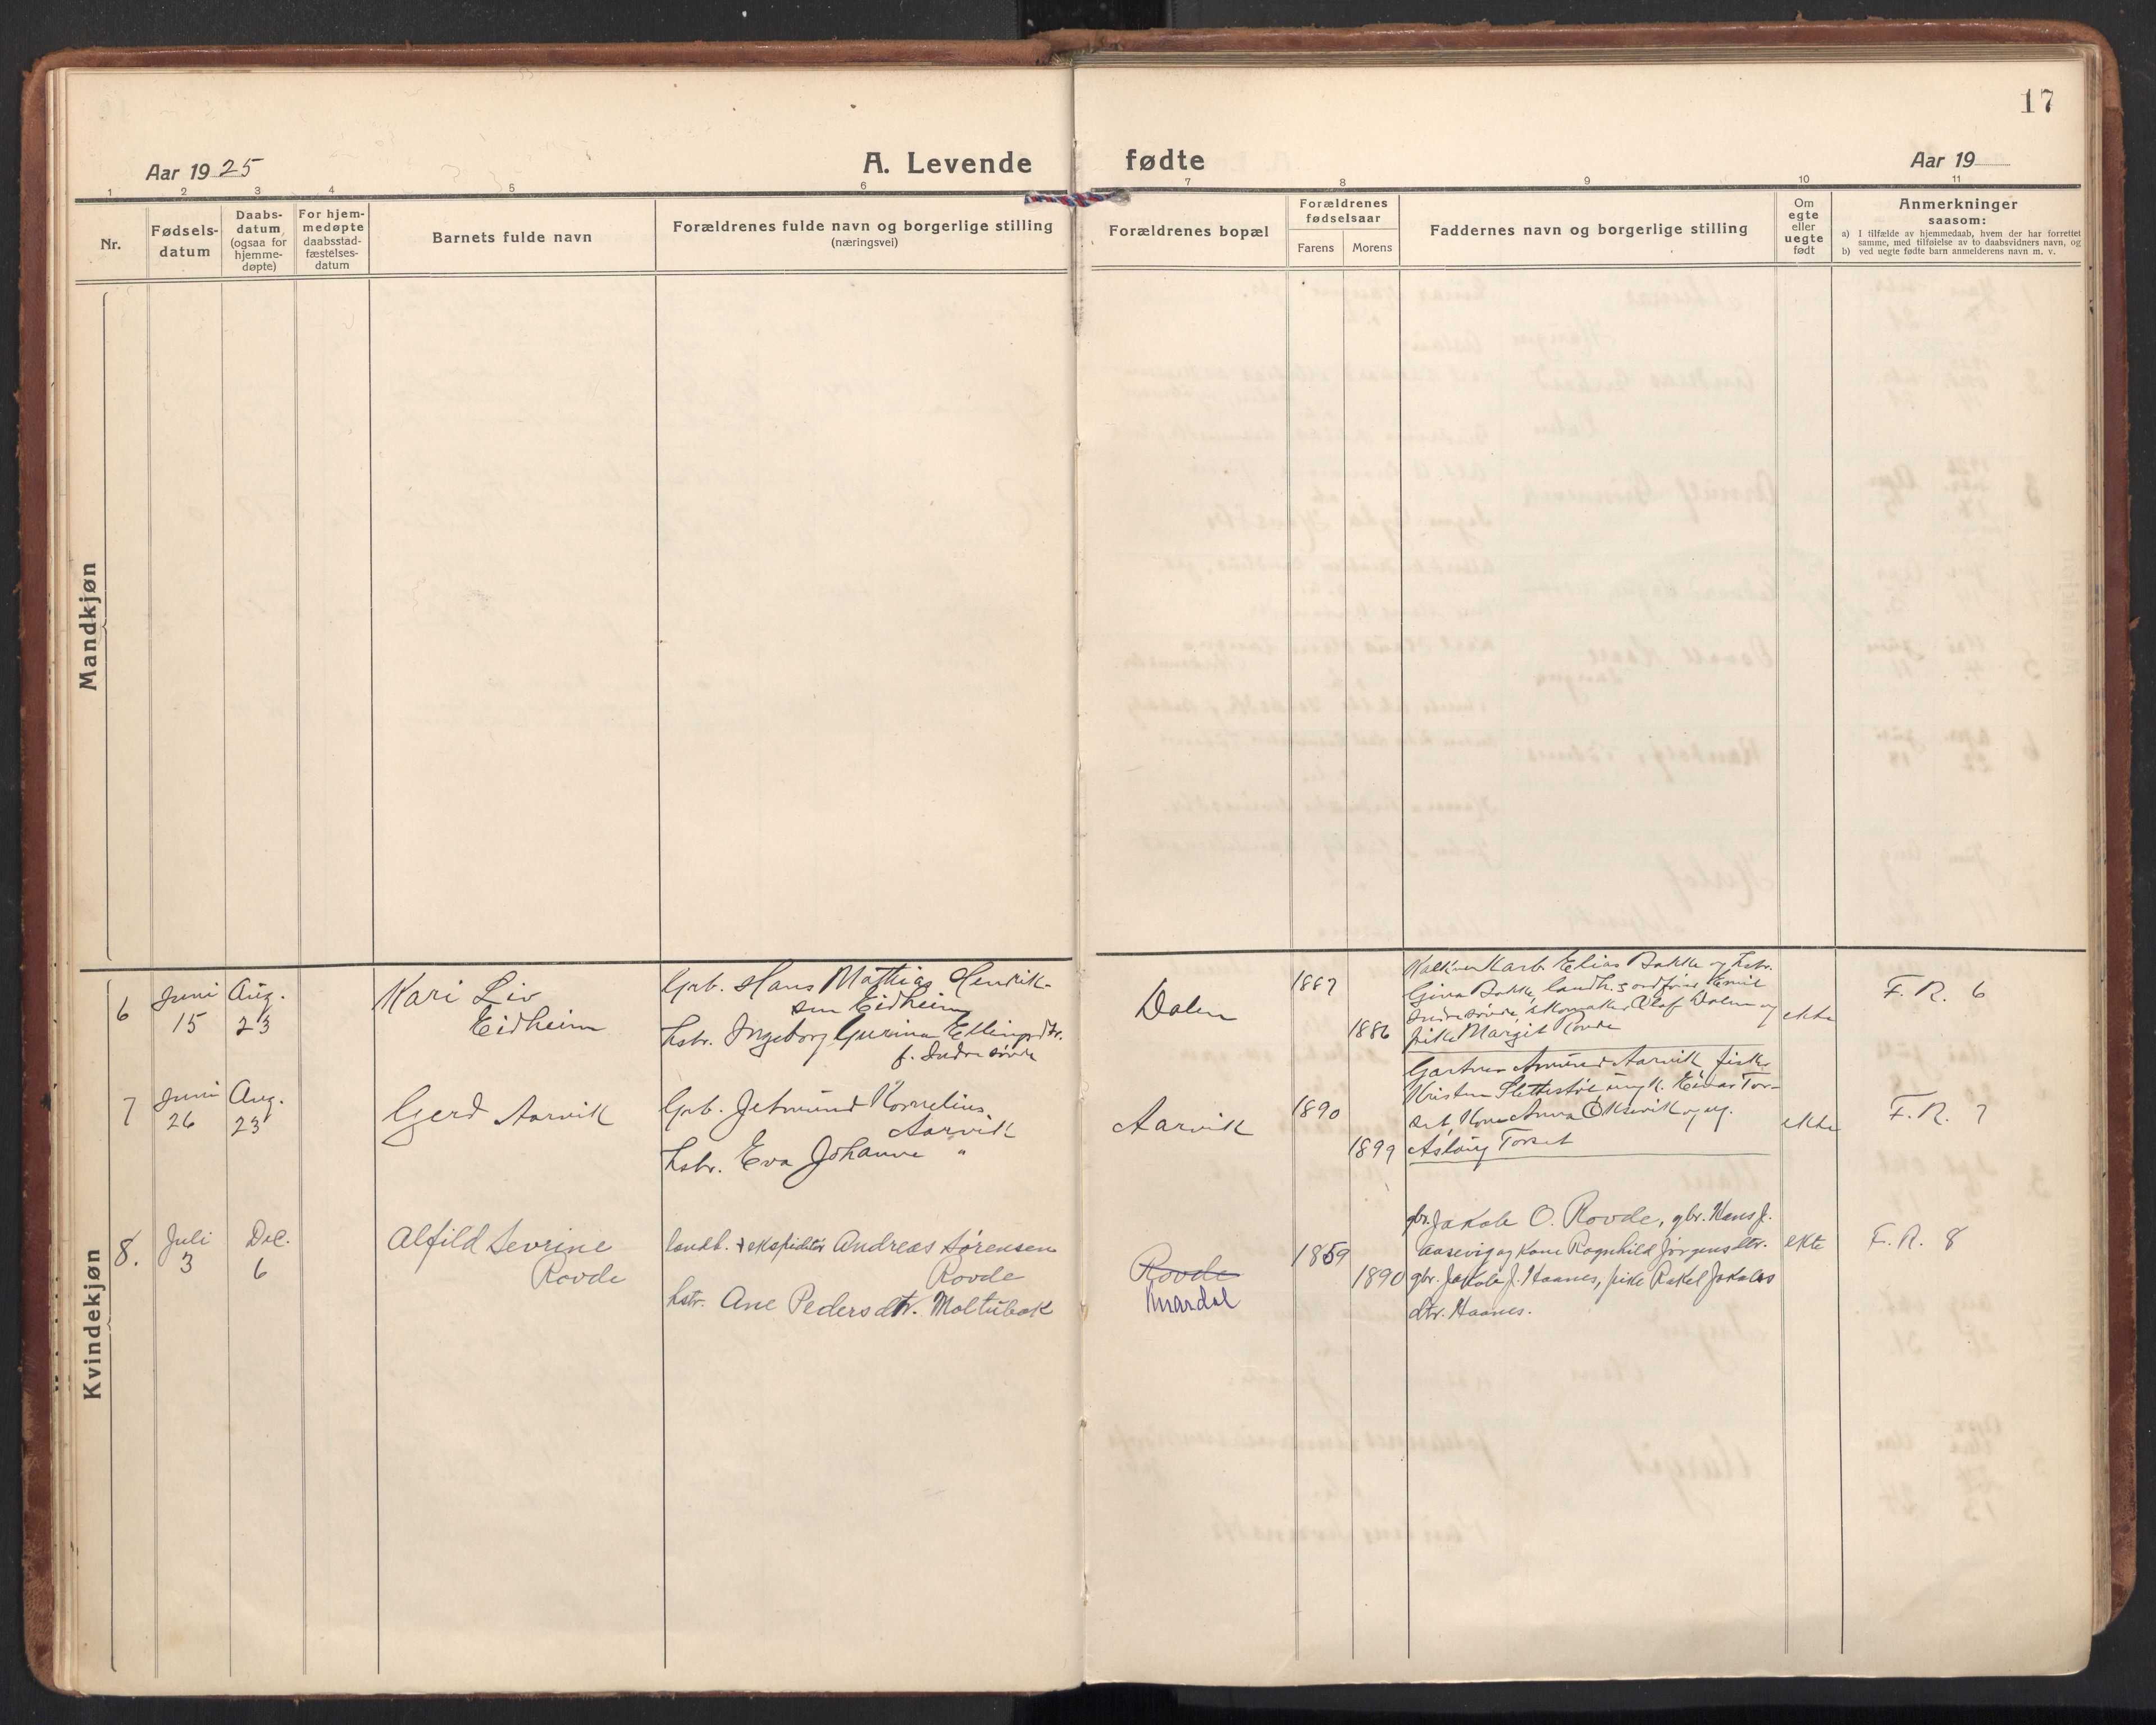 17
Aar 1925
A. Levende fødte
Aar 19
1 2 3 4 5 6 7 8 9 10 11
Nr.
Fødsels-
datum
Daabs-
datum
(ogsaa for
hjemme-
døpte)
For hjem-
medøpte
daabsstad-
fæstelses-
datum
Barnets fulde navn
Forældrenes fulde navn og borgerlige stilling
(næringsvei)
Forældrenes bopæl
Forældrenes
fødselsaar
Farens Morens
Faddernes navn og borgerlige stilling
Om
egte
eller
uegte
født
Anmerkninger
saasom:
a) I tilfælde av hjemmedaab, hvem der har forrettet
samme, med tilføielse av to daabsvidners navn, og
b) ved uegte fødte barn anmelderens navn m. v.
Mandkjøn
Kvindekjøn
6
Juni
15
Aug.
23
Kari Liv
Eidheim
Grb. Hans Mathias Henrik-
sen Eidheim
hstr. Ingeborg Gurina Ellingsdtr.
f. Indresøvde
Dalen
1887
1886
Karl Elias Bakke og hstr.
Gina Bakke, landh. s ordfører Emil
Indresøvde, skomaker Olaf Dalen og
pike Margit Rovde
ekte
F. R. 6
7
Juni
26
Aug.
23
Gerd Aarvik
Grb. Jetmund Kornelius
Aarvik
hstr. Eva Johanne "
Aarvik
1890
1899
Gartner Amund Aarvik, fisker
Kristen Slettestøl, ungk. Einar Tor-
set, Kone Anna Oksevik og ug.
Aslaug Torset
ekte
F. R. 7
8.
Juli
3
Dec.
6
Alfild Sevrine
Rovde
landh. + ekspeditør Andreas Sørensen
Rovde
hstr. Ane Pedersdtr. Moltubak
Rovde
Knardal
1859
1890
gbr. Jakob O. Rovde, gbr. Hans J.
Aasevig og Kone Ragnhild Jørgensdtr.
gbr. Jakob J. Haanes, pike Rakel Jakobs
dtr. Haanes.
ekte
F. R. 8